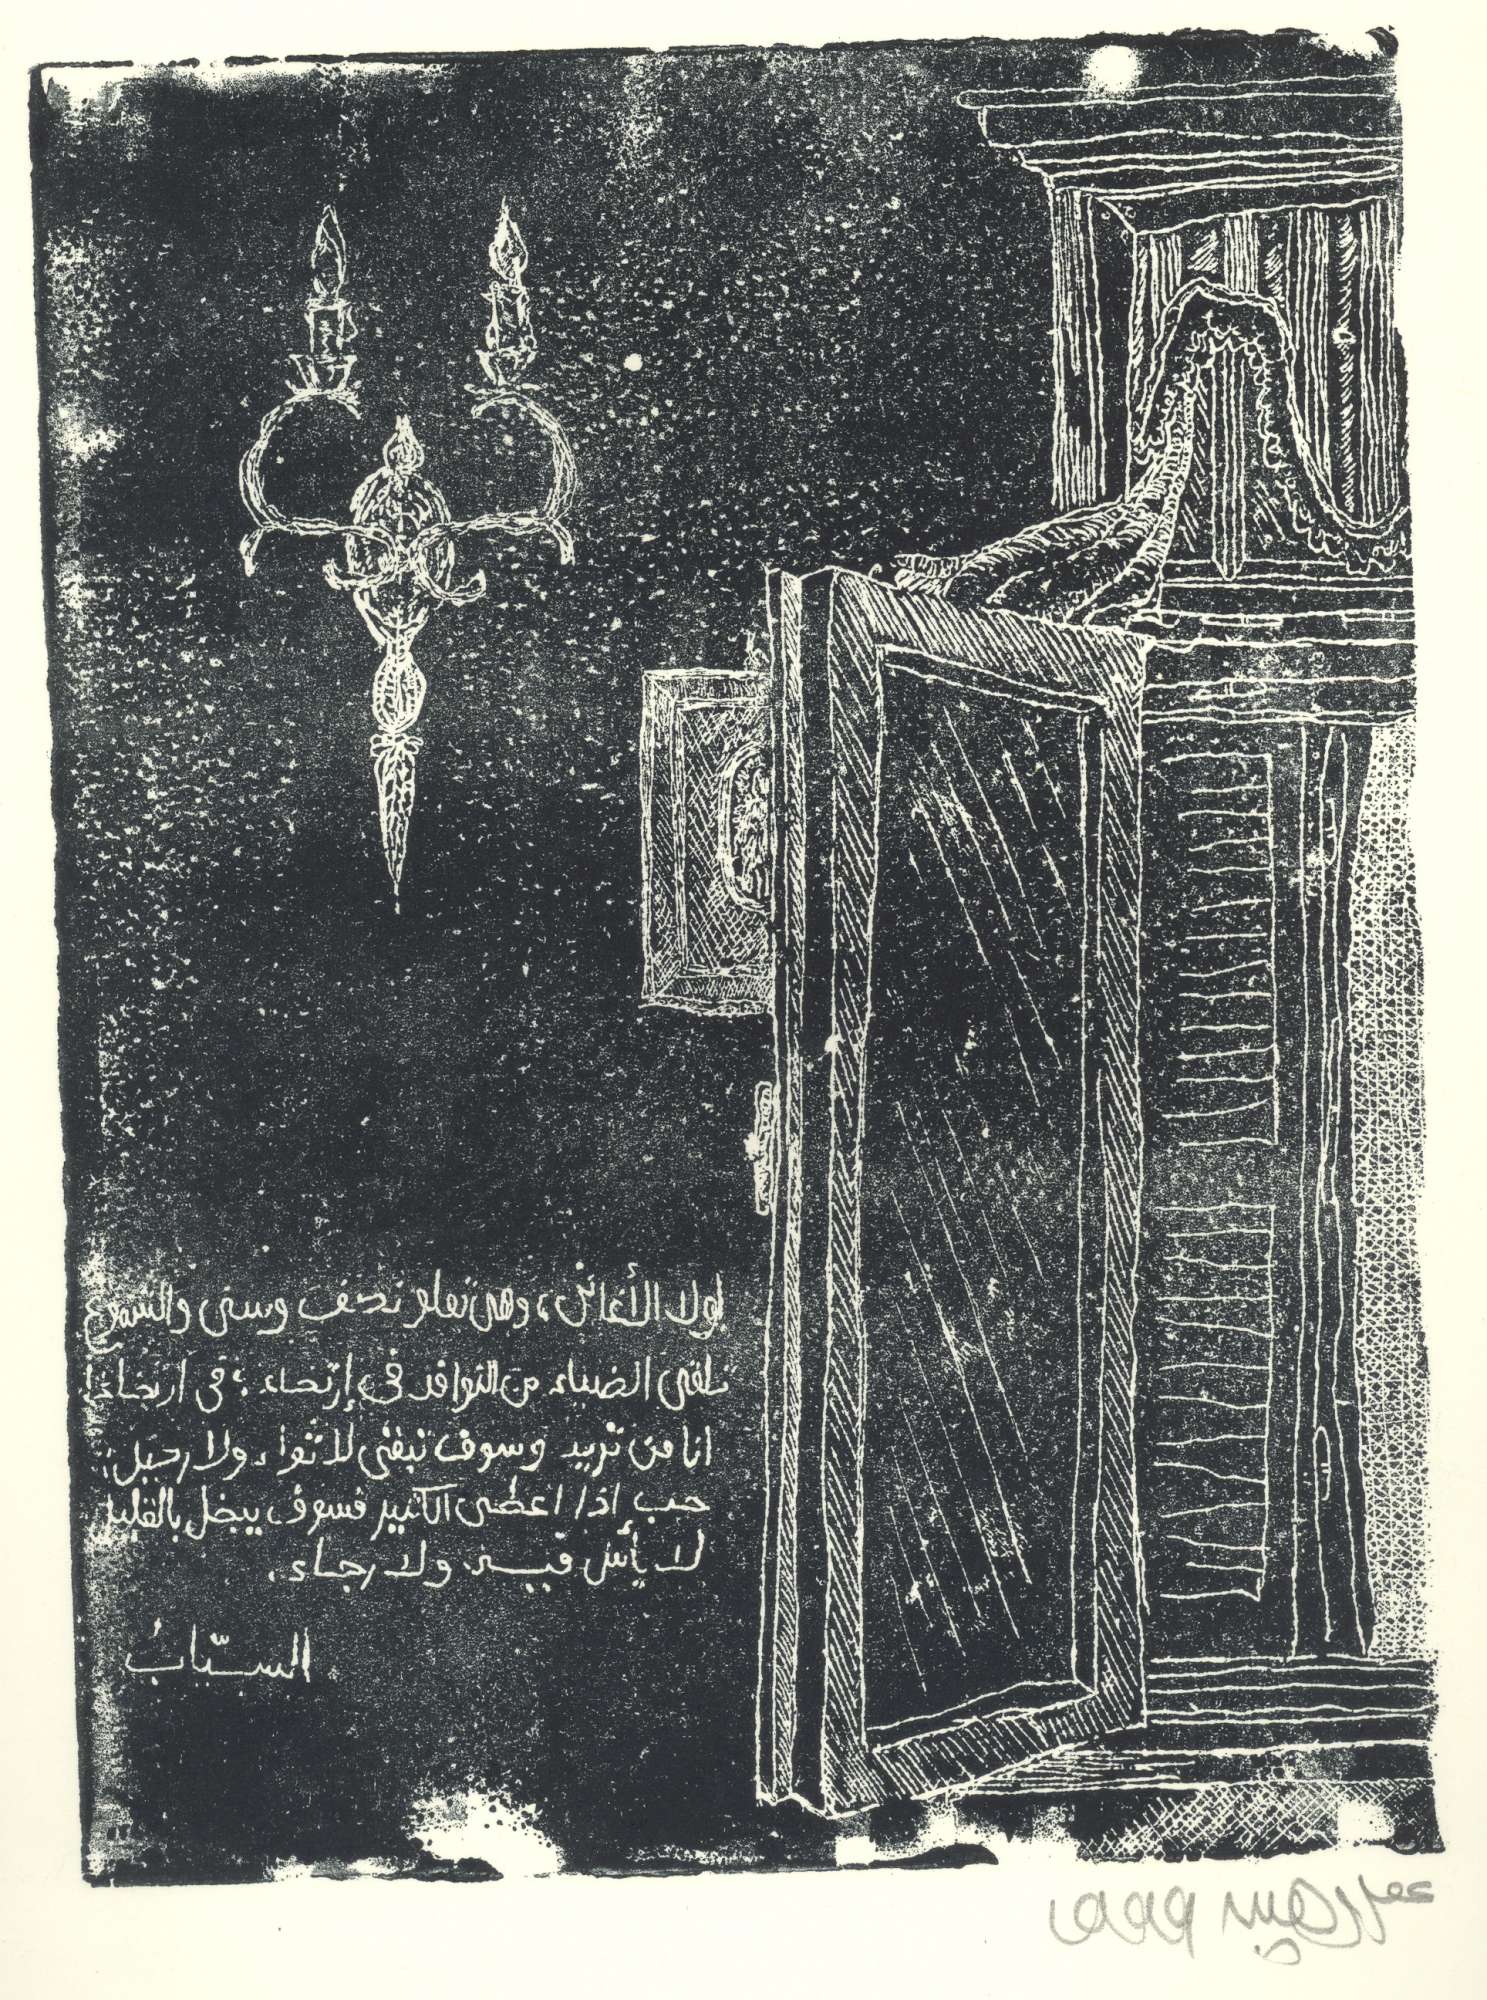 لولا الأغاني، وهي تعلو نصف وسنى والشموع
تلقي الضياء من النوافذ في إرتخاء؛ في ارتخاء
انا من تريد وسوف تبقى لا ثواء ولا رحيل:
حب إذا اعطى الكثير فسوف يبخل بالقليل
لا يأس فيه ولا رجاء.
السيّاب